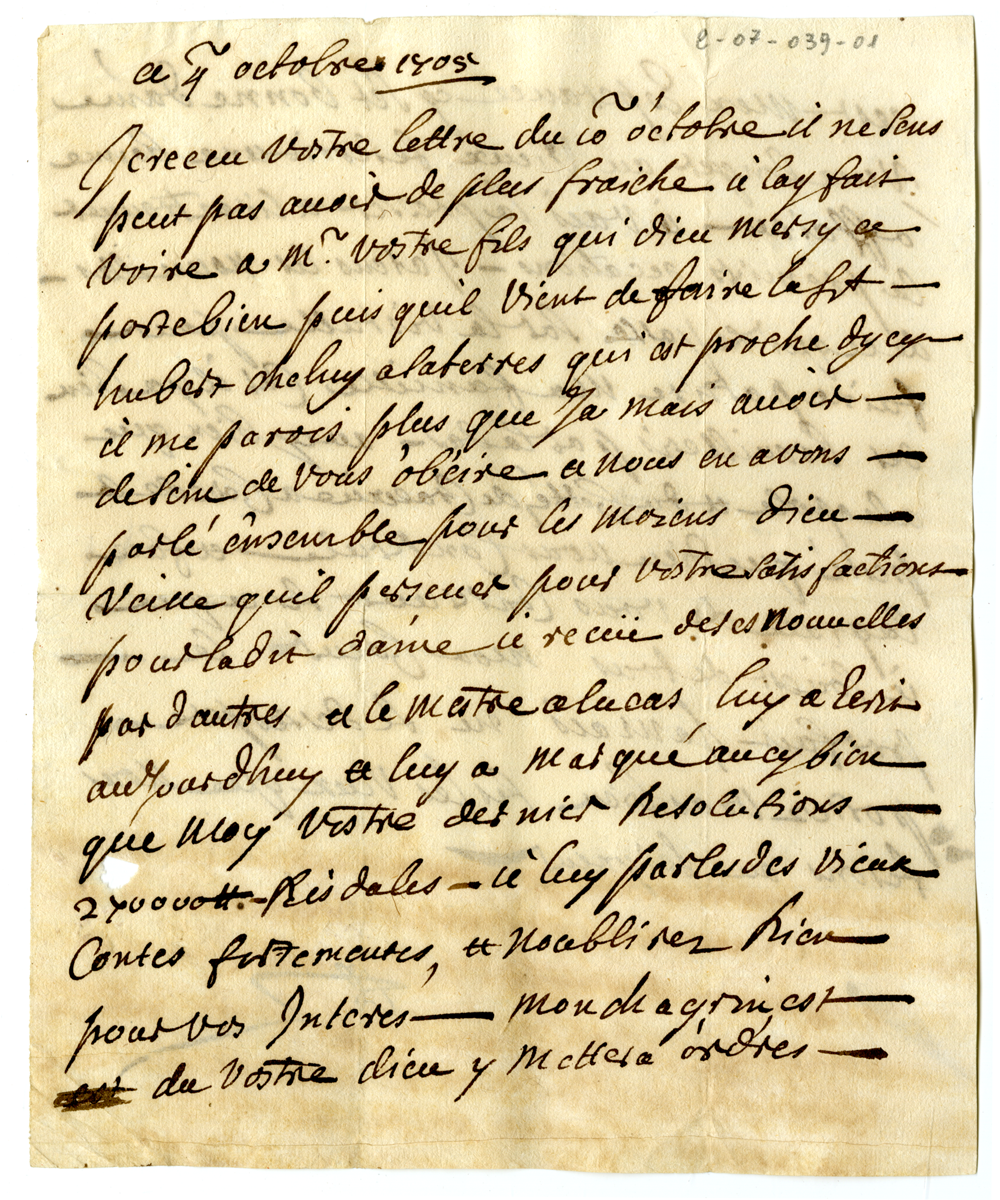 2-07-039-01
a 4e octobre 1705
Jereceu vostre lettre du 10e octobre il ne sens
peut pas auoir de plus fraiche ie lay fait
voire a Mr. vostre fils qui dieu mersy ce
porte bien puis quil vient de faire la st
hubert cheluy alaterres qui est proche dycy
il me parois plus que Ja mais auoir
desein de vous obeire et nous en avons
parlé ensemble pour les moiens dieu
veille quil perseuer pour vostre satisfactions
pour ladit dame ie receu de ses nouuelles
par dautres et le mestre alucas luy a Ecrit
aujourdhuy et luy a marqué aucy bien
que moy vostre dernier Resolutions
270000tt. Risdales ie luy parles des vieux
Contes fortementes, et noublirez Rien
pour vos Interes mon chagrin est
est du vostre dieu y mettera ordres